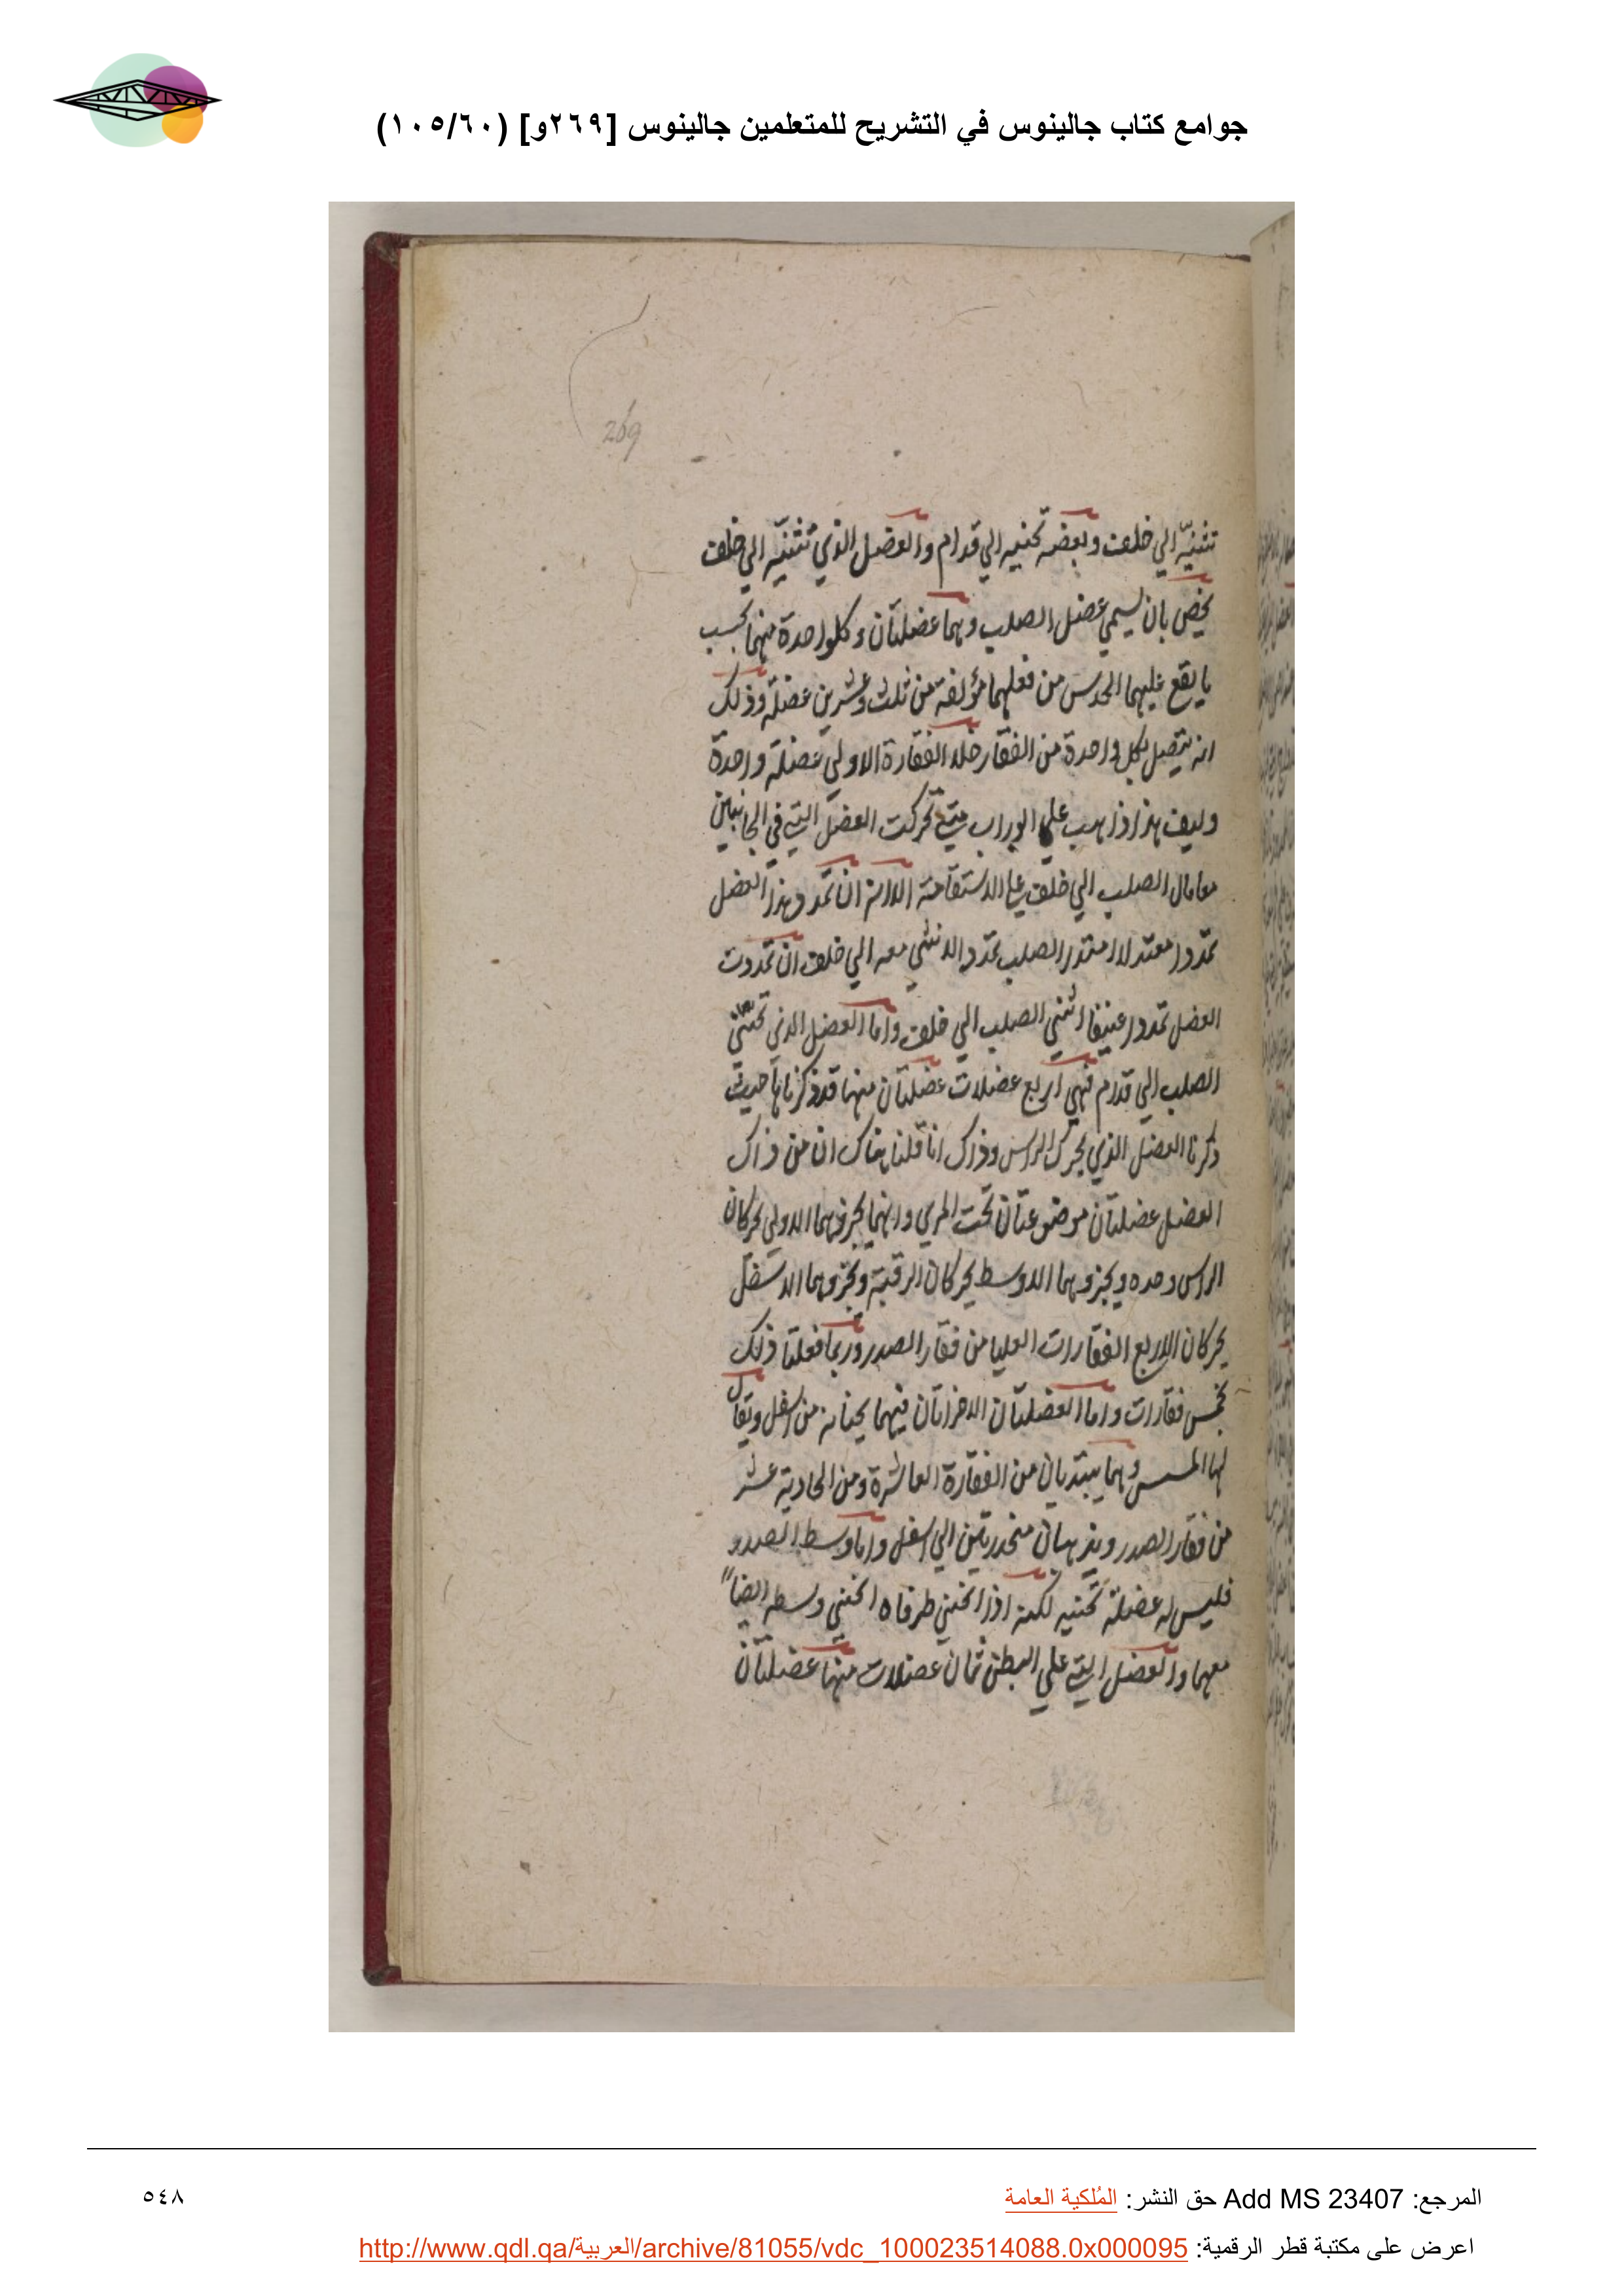 جوامع كتاب جالينوس في التشريح للمتعلمين جالينوس [٢٦٩و] (١٠٥/٦٠)
269
تثنيه الي خلف وبعضه تحنيه الي قدام والعضل الذي تثنيه الي خلف
يخص بان يسمي عضل الصلب وهما عضلتان وكلواحدة منهما بحسب
ما يقع عليهما الحدس من فعلهما مؤلفة من ثلث وعشرين عضلة وذلك
انه يتصل بكل واحدة من الفقار خلا الفقارة الاولي عضلة واحدة
وليف هذا ذاهب علي الوراب متي تحركت العضل التي في الجانبين
معا مال الصلب الي خلف علي الاستقامة الا انه ان تمدد هذا العضل
تمددا معتدلا امتد الصلب تمدد والا نثني معه الي خلف ان تمددت
العضل تمددا عنيفا انثني الصلب الي خلف واما العضل الذي تحني
الصلب الي قدام فهي اربع عضلات عضلتان منها قد ذكرناها حيث
ذكرنا العضل الذي يحرك الراس وذاك انا قلنا هناك ان من ذاك
العضل عضلتان موضوعتان تحت المري وانهما بجزوهما الاولي يحركان
الراس وحده وبجزوهما الاوسط يحركان الرقبة وبجزوهما الاسفل
يحركان الاربع الفقارات العليا من فقار الصدر وربما فعلتا ذلك
بخمس فقارات واما العضلتان الاخراتان فهما يحنيانه من اسفل ويقال
لها وهما يبتديان من الفقارة العاشرة ومن الحادية عشر
من فقار الصدر ويذهبان منحدرتين الي اسفل واما وسط الصدر
فليس له عضلة تحنيه لكنه اذا انحني طرفاه انحني وسطه ايضا
معهما والعضل التي علي البطن ثمان عضلات منها عضلتان
المرجع: Add MS 23407 حق النشر: المُلكية العامة
٥٤٨
اعرض على مكتبة قطر الرقمية: http://www.qdl.qa/العربية/archive/81055/vdc_100023514088.0x000095